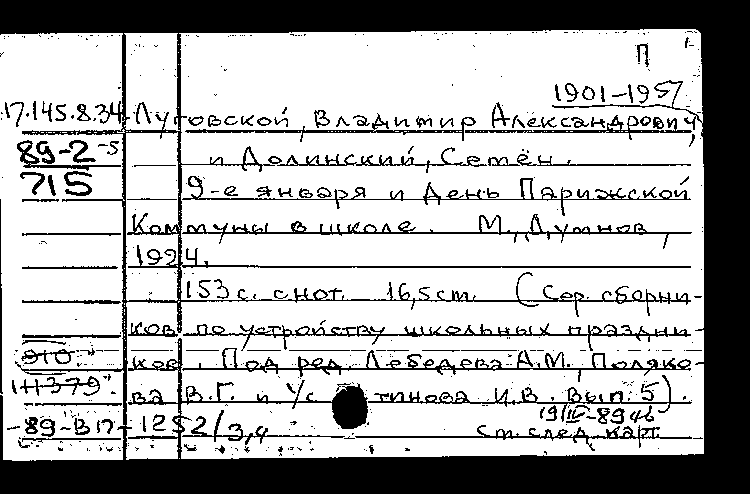 П
1901-1957
17.145.8.34 Луговской, Владимир Александрович,
89-2-5 и Долинский, Семён.
715 9-е января и День Парижской
Коммуны в школе. М., Думнов,
1924.
153 с. с нот. 16,5 см. (Сер. сборни-
ков по устройству школьных праздни-
910 ков. Под ред. Лебедева А.М., Поляко-
111379 ва В.Г. и Ус тинова И.В. Вып. 5).
19/IV-89
-89-В17-1252/3,4 См. след. карт.